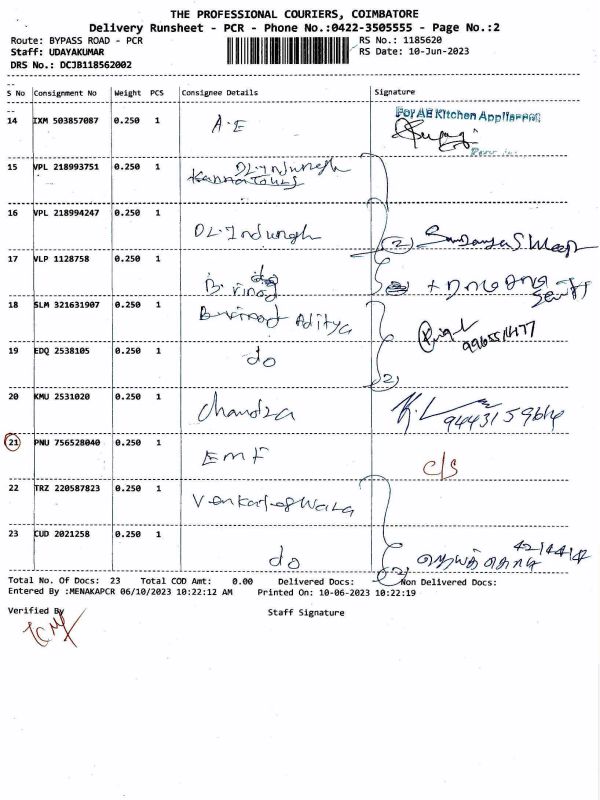 THE PROFESSIONAL COURIERS, COIMBATORE
Delivery Runsheet - PCR - Phone No.:0422-3505555 - Page No.:2
Route: BYPASS ROAD - PCR RS No.: 1185620
Staff: UDAYAKUMAR RS Date: 10-Jun-2023
DRS No.: DCJB118562002
S No Consignment No Weight PCS Consignee Details Signature
14 IXM 503857087 0.250 1 A.E For AE Kitchen Appliances
15 VPL 218993751 0.250 1
16 VPL 218994247 0.250 1 (2)
17 VLP 1128758 0.250 1 B. vinod do
18 SLM 321631907 0.250 1 B. vinod Aditya
19 EDQ 2538105 0.250 1 do (2)
20 KMU 2531020 0.250 1 Chandra K.L
21 PNU 756528040 0.250 1 EMF c/s
22 TRZ 220587823 0.250 1
23 CUD 2021258 0.250 1 do (2)
Total No. Of Docs: 23 Total COD Amt: 0.00 Delivered Docs: Non Delivered Docs:
Entered By :MENAKAPCR 06/10/2023 10:22:12 AM Printed On: 10-06-2023 10:22:19
Verified By Staff Signature